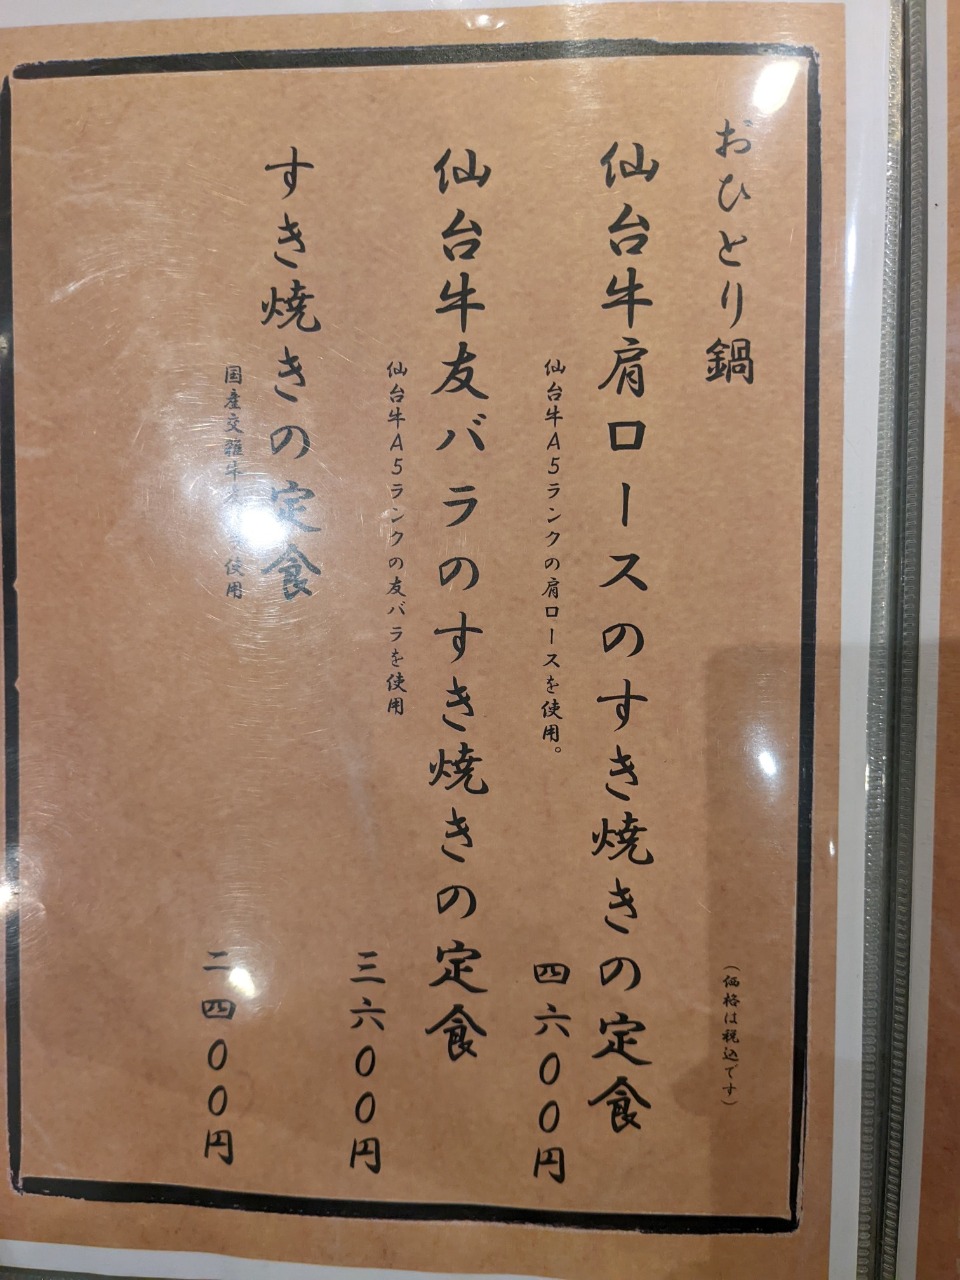 おひとり鍋
(価格は税込です)
仙台牛肩ロースのすき焼きの定食
仙台牛A5ランクの肩ロースを使用。
四六〇〇円
仙台牛友バラのすき焼きの定食
仙台牛A5ランクの友バラを使用
三六〇〇円
すき焼きの定食
国産交雑牛 使用
二四〇〇円